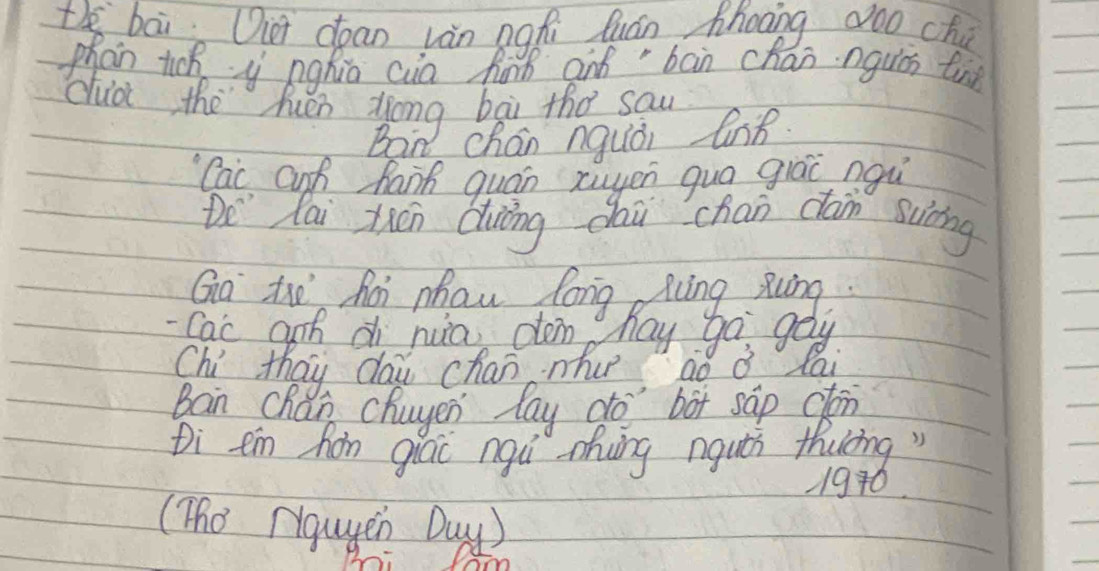 Đề bài: Viết đoạn văn nghị luận khoảng 200 chữ
phân tích ý nghĩa của hình ảnh "bàn chân người lính
được thể hiện trong bài thơ sau
Bàn chân người lính.
"Các anh hành quân xuyên qua giấc ngủ
Để lại trên đường dấu chân đẫm sương
Già trẻ hỏi nhau lòng rưng rưng.
- Các anh đi nửa đêm hay gà gáy
Chỉ thấy dấu chân như ào ở lại
Bàn chân chuyển lay đồ bót sập đồn
Đi êm hơn giấc ngủ những người thương"
1970.
(Thơ Nguyễn Duy)
Bài làm